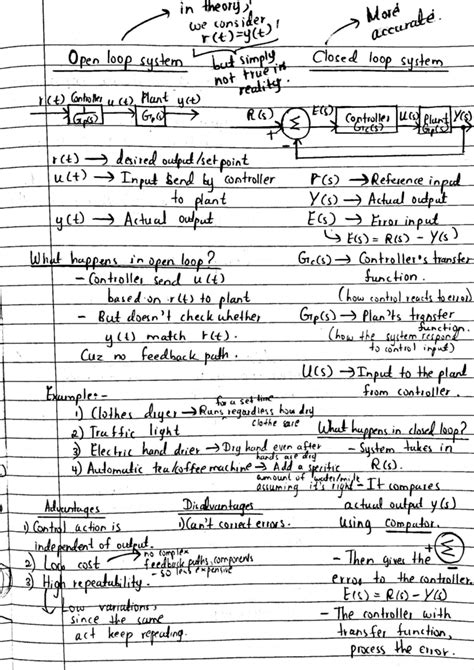 in theory,
we consider
r(t)=y(t)!
but simply
not true in
reality.
More
accurate.
Open loop system
Closed loop system
r(t) Controller u(t) Plant y(t)
1/Gp(s) Gp(s)
R(s) + Σ - E(s) Controller Gc(s) U(s) Plant Gp(s) Y(s)
r(t) → desired output/setpoint
u(t) → Input Send by controller
to plant
y(t) → Actual output
R(s) → Reference input
Y(s) → Actual output
E(s) → Error input
↳ E(s) = R(s) - Y(s)
Gc(s) → Controller's transfer
function.
(how control reacts to error)
Gp(s) → Plant's transfer
function.
(how the system respond
to control input)
U(s) → Input to the plant
from controller.
What happens in open loop?
- Controller send u(t)
based on r(t) to plant
- But doesn't check whether
y(t) match r(t).
Cuz no feedback path.
Example:-
1) Clothes dryer → Runs for a set time regardless how dry
clothe are
2) Traffic light
3) Electric hand drier → Dry hand even after
hands are dry
4) Automatic tea/coffee machine → Add a specific
amount of water/milk
assuming it's right
Advantages
1) Control action is
independent of output.
2) Low cost → no complex
feedback paths, components
- so less expensive
3) High repeatability.
↳ Low variations,
since the same
act keep repeating.
Disadvantages
1) Can't correct errors.
What happens in closed loop?
- System takes in
R(s).
- It compares
actual output y(s)
using computor.
+ Σ -
- Then gives the
error to the controller.
E(s) = R(s) - Y(s)
- The controller with
transfer function,
process the error.